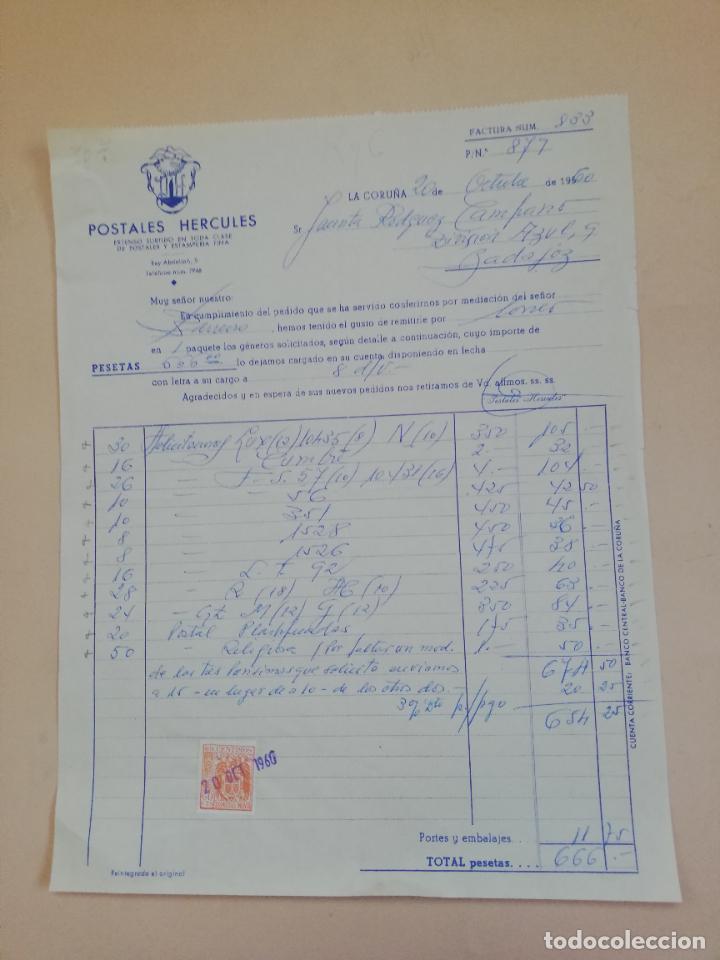 FACTURA NUM. 833
P/N.º 877
LA CORUÑA 20 de Octubre de 1960
POSTALES HERCULES
EXTENSO SURTIDO EN TODA CLASE
DE POSTALES Y ESTAMPERIA FINA
Rey Abdullah, 5
Teléfono núm. 1948
Sr. Juanita Rodguez Campano
División Azul, 9
Badajoz
Muy señor nuestro:
En cumplimiento del pedido que se ha servido conferirnos por mediación del señor
, hemos tenido el gusto de remitirle por
en 1 paquete los géneros solicitados, según detalle a continuación, cuyo importe de
PESETAS lo dejamos cargado en su cuenta disponiendo en fecha
con letra a su cargo a 8 d/v.-
Agradecidos y en espera de sus nuevos pedidos nos retiramos de Vd. affmos. ss. ss.
Postales Hercules
30 Luxe (12) 10435 (8) N (10) 350 105 .-
16 Cumbre 2.- 32 .-
26 F-S. 57 (10) 10.431 (16) 4.- 104 .-
10 - 56 425 42 50
10 - 351 450 45 .-
8 - 1528 450 36 .-
8 - 1526 475 38 .-
16 - L. E 92 250 40 .-
28 - R (18) AC (10) 225 63 .-
24 - Gt. M (12) G (12) 350 84 .-
20 Postal Plastificadas 175 35 .-
50 - Religiosa / Por faltar un mod. 1.- 50 .-
de las tas que solicita enviamos 674 50
a 15 - en lugar de a 10 - de los otros dos.- 20 25
3% Dto p/pgo 654 25
CUENTA CORRIENTE: BANCO CENTRAL-BANCO DE LA CORUÑA
CENTIMOS
20 OCT 1960
Portes y embalajes . . 11 75
TOTAL pesetas. . . . 666 .-
Reintegrado el original
todocoleccion
todocoleccion.net